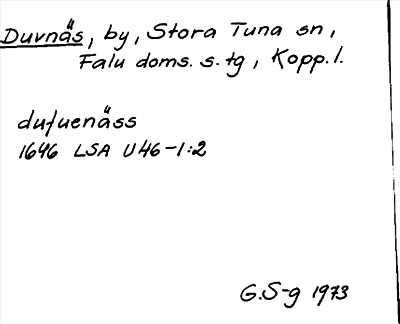 Duvnäs, by, Stora Tuna sn,
Falu doms. s. tg, Kopp. l.
dufuenäss
1646 LSA U46-1:2
G.S-g 1973